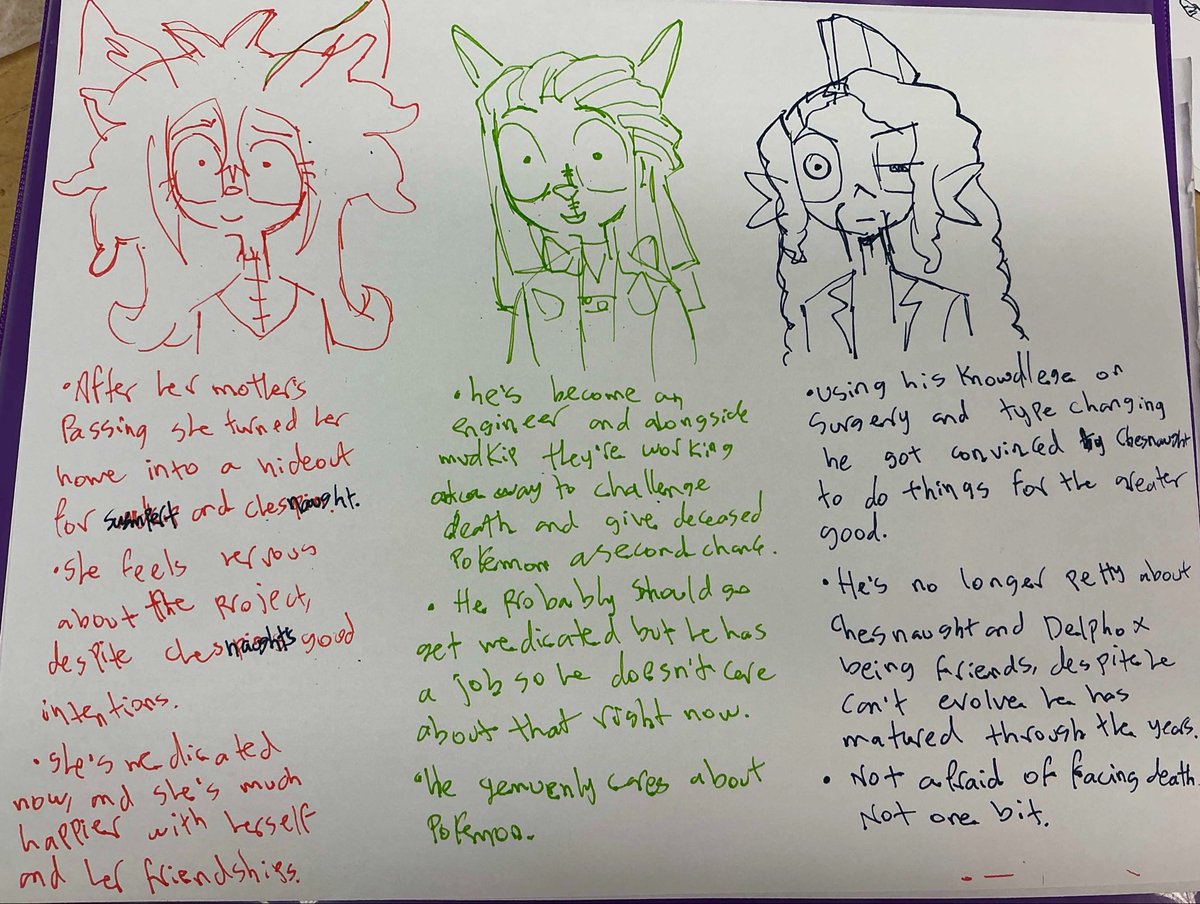 •After her mother's
Passing she turned her
home into a hideout
for and chesnaught.
•She feels nervous
about the Project,
despite chesnaughts good
intentions.
•She's medicated
now, and she's much
happier with herself
and her friendships.
•he's become an
engineer and alongside
mudkip they're working
on a way to challenge
death and give deceased
Pokemon a second chance.
• He Probably should go
get medicated but he has
a job so he doesn't care
about that right now.
•He genuenly cares about
Pokemon.
•Using his Knowdllege on
Surgery and type changing
he got convinced by Chesnaught
to do things for the greater
good.
•He's no longer petty about
Chesnaught and Delphox
being friends, despite he
can't evolve he has
matured through the years.
• Not afraid of facing death.
Not one bit.